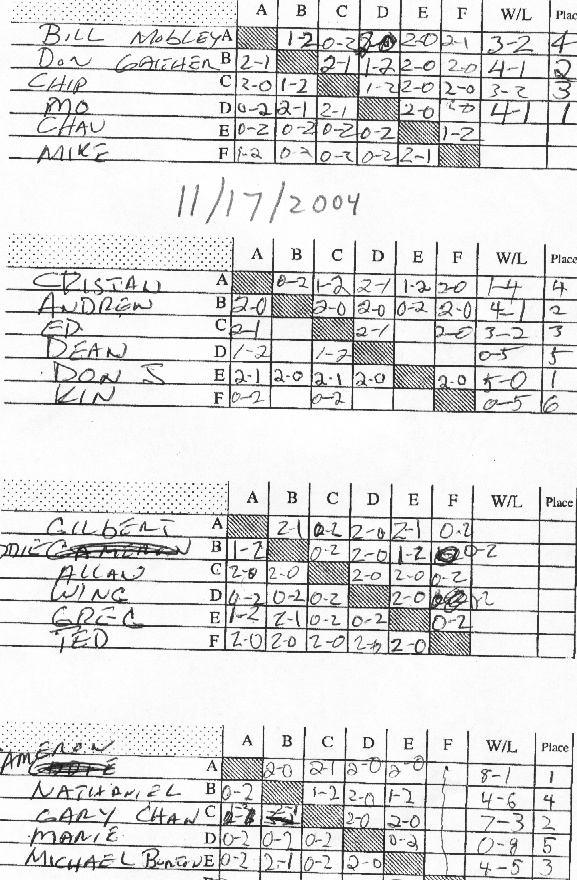 A B C D E F W/L Place
BILL MOBLEY A 1-2 0-2 2-0 2-1 3-2 4
DON GAITHER B 2-1 2-1 1-2 2-0 2-0 4-1 2
CHIP C 2-0 1-2 1-2 2-0 2-0 3-2 3
MO D 0-2 2-1 2-1 2-0 4-1 1
CHAU E 0-2 0-2 0-2 0-2 1-2
MIKE F 1-2 0-2 0-2 0-2 2-1
11/17/2004
A B C D E F W/L Place
CRISTAN A 0-2 1-2 2-1 1-2 2-0 1-4 4
ANDREW B 2-0 2-0 2-0 0-2 2-0 4-1 2
ED C 2-1 2-1 2-0 3-2 3
DEAN D 1-2 1-2 0-5 5
DON S E 2-1 2-0 2-1 2-0 2-0 5-0 1
KIN F 0-2 0-2 0-5 6
A B C D E F W/L Place
GILBERT A 2-1 0-2 2-0 2-1 0-2
B 1-2 0-2 2-0 1-2 0-2
ALLAN C 2-0 2-0 2-0 2-0 0-2
WING D 0-2 0-2 0-2 2-0
GREG E 1-2 2-1 0-2 0-2 0-2
TED F 2-0 2-0 2-0 2-0 2-0
A B C D E F W/L Place
AMERON A 2-0 2-1 2-0 2-0 8-1 1
NATHANIEL B 0-2 1-2 2-0 1-2 4-6 4
GARY CHAN C 2-0 2-0 7-3 2
MARIE D 0-2 0-2 0-2 0-2 5
MICHAEL E 0-2 2-1 0-2 2-0 4-5 3